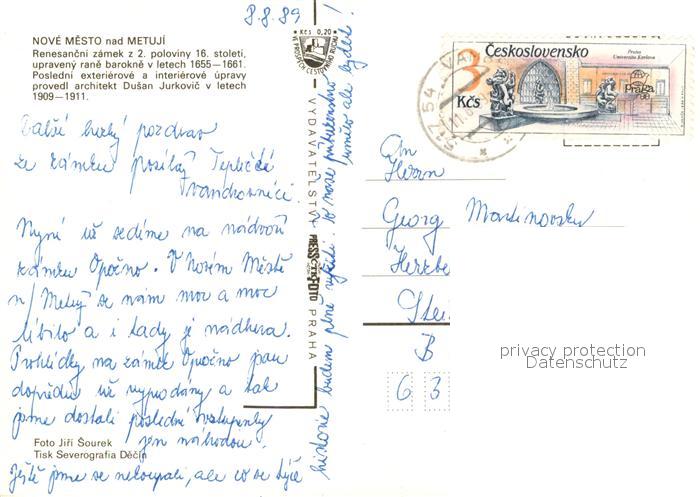 8.8.89
NOVÉ MĚSTO nad METUJÍ
Renesanční zámek z 2. poloviny 16. století,
upravený raně barokně v letech 1655—1661.
Poslední exteriérové a interiérové úpravy
provedl architekt Dušan Jurkovič v letech
1909—1911.
Další hezký pozdrav
ze zámku posílají Tepličtí
vandrovníci.
Nyní už sedíme na nádvoří
zámku Opočno. V Novém Městě
n/Metují se nám moc a moc
líbilo a i tady je nádhera.
Prohlídky na zámce Opočno jsou
dopředu už vyprodány a tak
jsme dostali poslední vstupenky
jen náhodou.
Ještě jsme se nekoupali, ale co se týče
historie budem plně vyžití. to naše
umílo ale lydeš!
Foto Jiří Šourek
Tisk Severografia Děčín
Kčs 0,20
VE PROSPĚCH CESTOVNÍHO RUCHU
VYDAVATELSTVÍ
PRESSFOTO
PRAHA
Československo
3 Kčs
Praha
Univerzita Karlova
Praga
517 54 VA
An
Herrn
Georg
Herzbe
Stei
B
63
privacy protection
Datenschutz